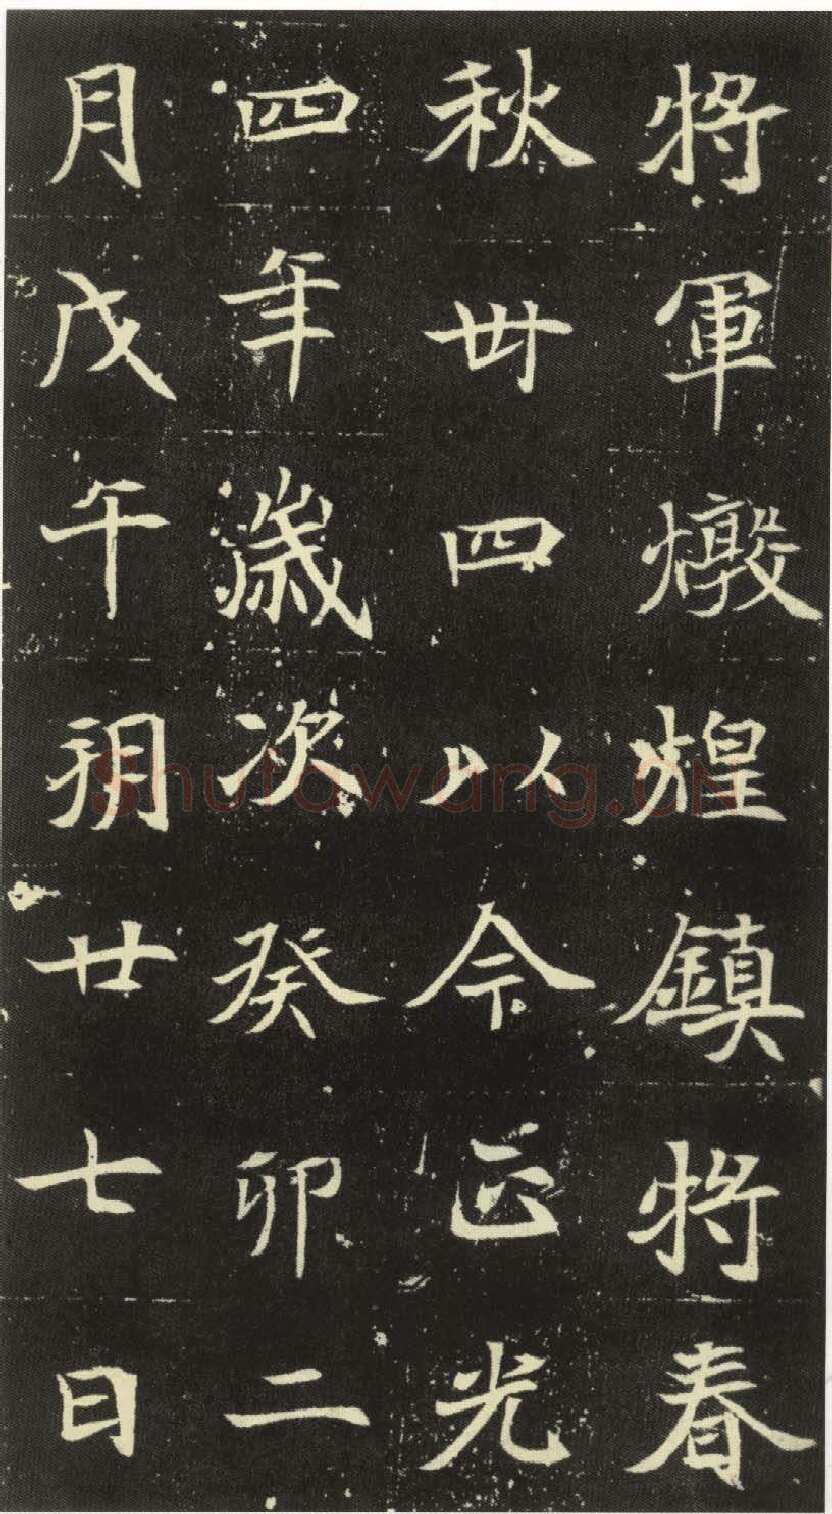 將軍燉煌鎮將春
秋卌四以今正光
四年歲次癸卯二
月戊午朔廿七日
Shufawang.CN